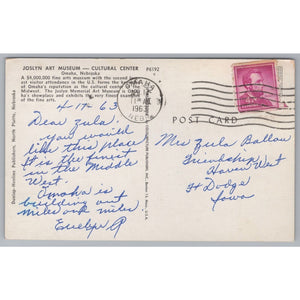 JOSLYN ART MUSEUM — CULTURAL CENTER
Omaha, Nebraska
P6192
A $4,000,000 fine arts museum with the second largest visitor attendance in the U.S. forms the keystone
of Omaha's reputation as the cultural center of the
Midwest. The Joslyn Memorial Art Museum is Omaha's showplace and exhibits the very finest examples
of the fine arts.
OMAHA
1963
NEBR
4-17-63
Dear Zula.
You would
like this place
It is the finest
in the Middle
West.
Omaha is
building out
miles and miles
Evelyn A
POST CARD
Mrs Zula Ballou
Friendship
Haven West
Ft Dodge
Iowa